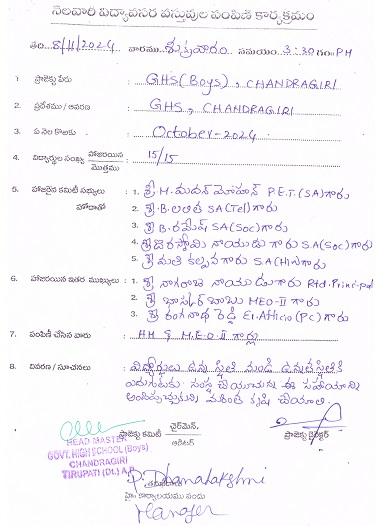 నెలవారీ విద్యావసర వస్తువుల పంపిణీ కార్యక్రమం
తేది 8/11/2024 వారము శుక్రవారం సమయం 3:30 గం PM
1 ప్రాజెక్టు పేరు : GHS (Boys), CHANDRAGIRI
2. ప్రదేశము / ఆవరణ : GHS, CHANDRAGIRI
3. ఏ నెల కొఱకు : October-2024
4. విద్యార్థుల సంఖ్య హాజరయిన / మొత్తము : 15/15
5. హాజరైన కమిటీ సభ్యులు : 1. శ్రీ M. మదన్ మోహన్ P.E.T. (SA) గారు
హోదాతో 2. శ్రీ. B. లలిత SA (Tel) గారు
3. శ్రీ B. రమేష్ SA (Soc) గారు
4. శ్రీ దొరస్వామి నాయుడు గారు S.A (Soc) గారు
5. శ్రీమతి కల్పన గారు S.A (Hin) గారు
6. హాజరయిన ఇతర ముఖ్యులు : 1. శ్రీ నాగరాజ నాయుడు గారు Rtd. Principal
2. శ్రీ భాస్కర్ బాబు MEO-II గారు
3. శ్రీ రంగనాథ రెడ్డి Ex. Afficio (PC) గారు
7. పంపిణీ చేసిన వారు : HM & M.E.O-II గార్లు
8. వివరణ / సూచనలు : విద్యార్థులు ఉన్న స్థితి నుండి ఉన్నత స్థితికి
ఎదుగుటకు సంస్థ చేయుచున్న ఈ సహాయాన్ని
అందిపుచ్చుకుని మరింత కృషి చేయాలి.
ప్రాజెక్టు కమిటీ చైర్మెన్, / ఆడిటర్ ప్రాజెక్టు డైరెక్టర్
HEAD MASTER
GOVT. HIGH SCHOOL (Boys)
CHANDRAGIRI
TIRUPATI (Dt.) A.P.
P. Dhanalakshmi
Manager